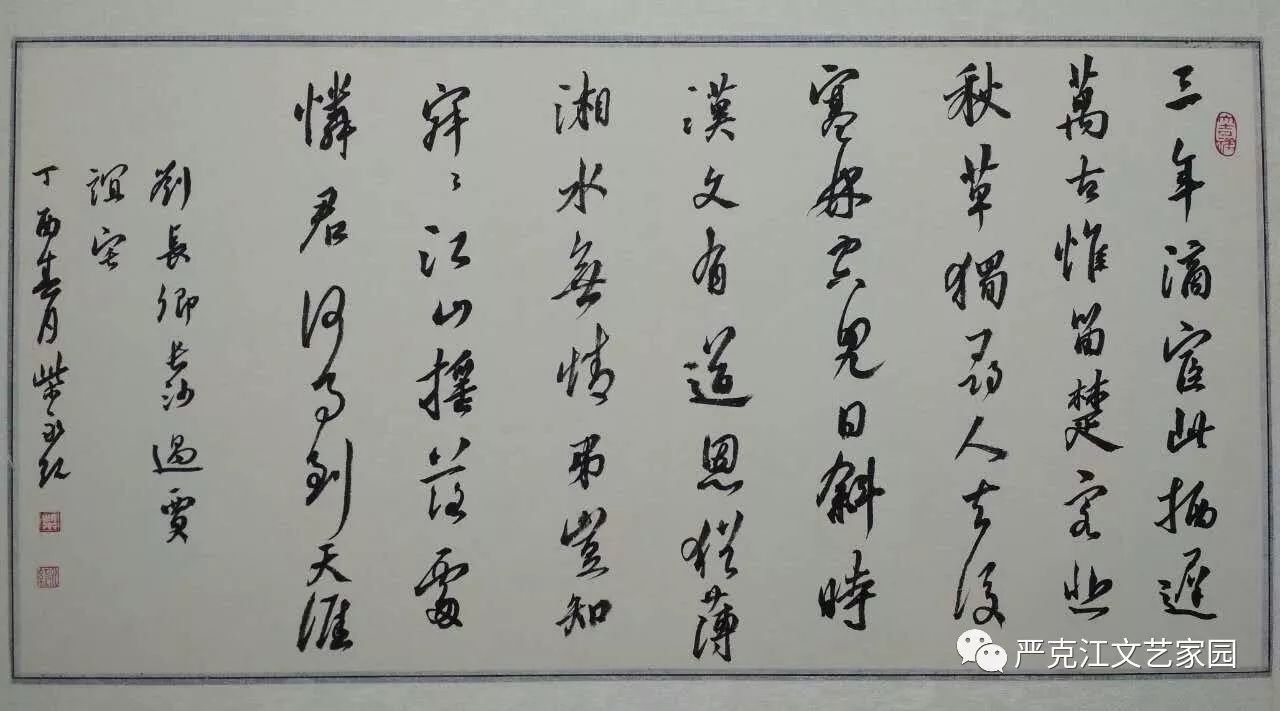 三年謫宦此栖遲
萬古惟留楚客悲
秋草獨尋人去後
寒林空見日斜時
漢文有道恩猶薄
湘水無情弔豈知
寂〻江山搖落處
憐君何事到天涯
劉長卿長沙過賈
誼宅
丁酉春月柴
大吉祥
严克江文艺家园